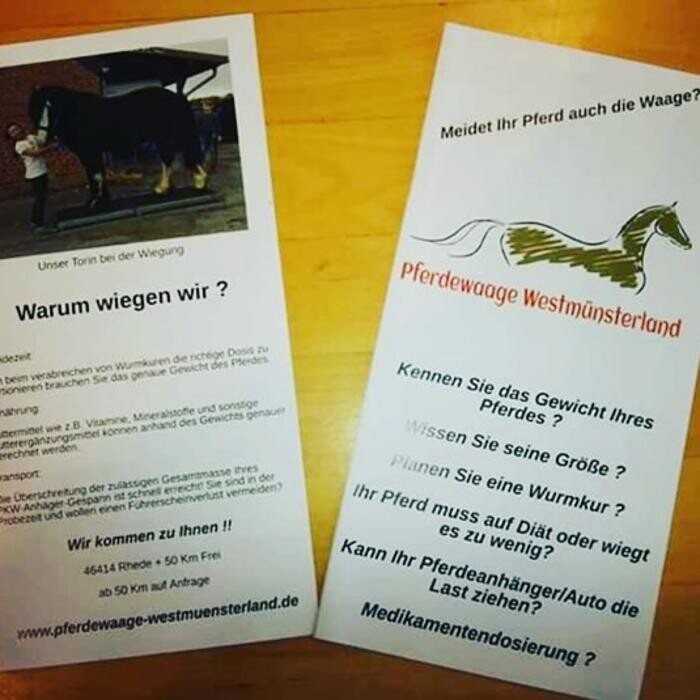 Unser Torin bei der Wiegung
Warum wiegen wir ?
beim verabreichen von Wurmkuren die richtige Dosis zu
brauchen Sie das genaue Gewicht des Pferdes.
wie z.B. Vitamine, Mineralstoffe und sonstige
können anhand des Gewichts genauer
werden.
Überschreitung der zulässigen Gesamtmasse Ihres
PKW-Anhäger-Gespann ist schnell erreicht! Sie sind in der
Probezeit und wollen einen Führerscheinverlust vermeiden?
Wir kommen zu Ihnen !!
46414 Rhede + 50 Km Frei
ab 50 Km auf Anfrage
www.pferdewaage-westmuensterland.de
Meidet Ihr Pferd auch die Waage?
Pferdewaage Westmünsterland
Kennen Sie das Gewicht Ihres
Pferdes ?
Wissen Sie seine Größe ?
Planen Sie eine Wurmkur ?
Ihr Pferd muss auf Diät oder wiegt
es zu wenig?
Kann Ihr Pferdeanhänger/Auto die
Last ziehen?
Medikamentendosierung ?